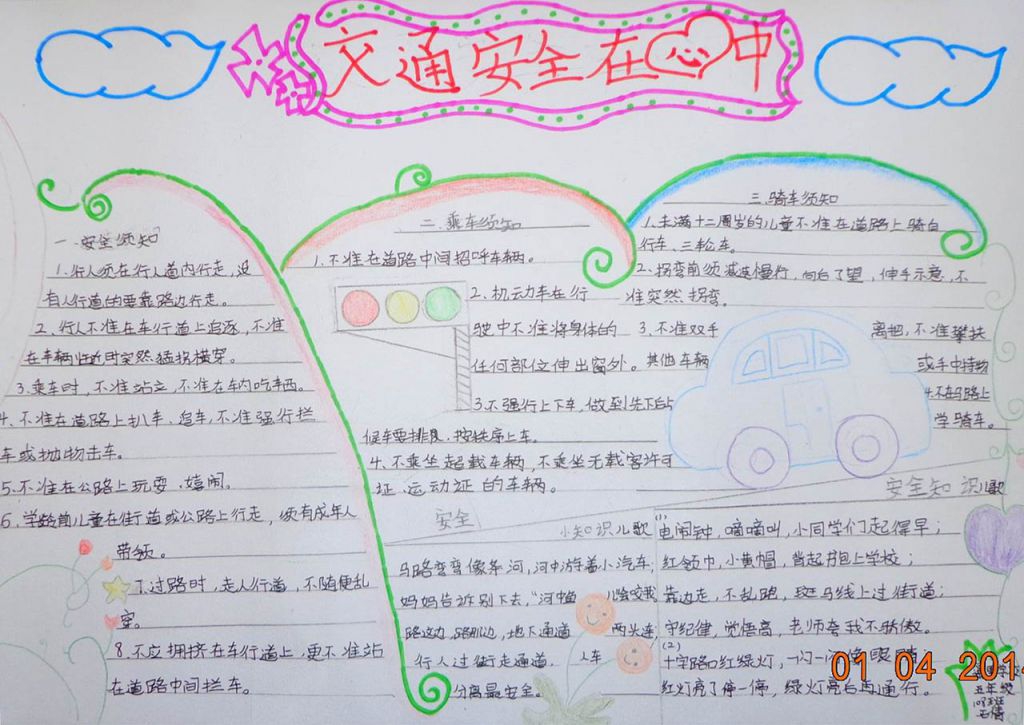 交通安全在心中
一.安全须知
1.行人须在行人道内行走,没
有人行道的要靠路边行走。
2、行人不准在车行道上追逐,不准
在车辆临近时突然猛拐横穿。
3.乘车时,不准站立,不准在车内吃东西。
4、不准在道路上扒车、追车,不准强行拦
车或抛物击车。
5.不准在公路上玩耍、嬉闹。
6、学龄前儿童在街道或公路上行走,须有成年人
带领。
7.过路时,走人行道,不随便乱
穿。
8.不应拥挤在车行道上,更不准站
在道路中间拦车。
二、乘车须知
1.不准在道路中间招呼车辆。
2、机动车在行
驶中不准将身体的
任何部位伸出窗外。
3.不强行上下车,做到先下后上
候车要排良.按秩序上车。
4、不乘坐超载车辆,不乘坐无载客许可
证、运动证的车辆。
三.骑车须知
1.未满十二周岁的儿童不准在道路上骑自
行车、三轮车。
2、拐弯前须减速慢行,向后了望,伸手示意,不
准突然拐弯。
3、不准双手离把,不准攀扶
其他车辆或手中持物
4.不在马路上
学骑车。
安全知识儿歌
安全小知识儿歌
马路弯弯像条河,河中游着小汽车;
妈妈告诉别下去,"河中鱼儿会咬我
路这边,路那边,地下通道两头连
行人过街走通道,人车
分离最安全。
(1)
电闹钟,嘀嘀叫,小同学们起得早;
红领巾,小黄帽,背起书包上学校;
靠边走,不乱跑,斑马线上过街道;
守纪律,觉悟高,老师夸我不骄傲。
(2)
十字路口红绿灯,一闪一闪像眼睛
红灯亮了停一停,绿灯亮后再通行。
01 04 201
五年级